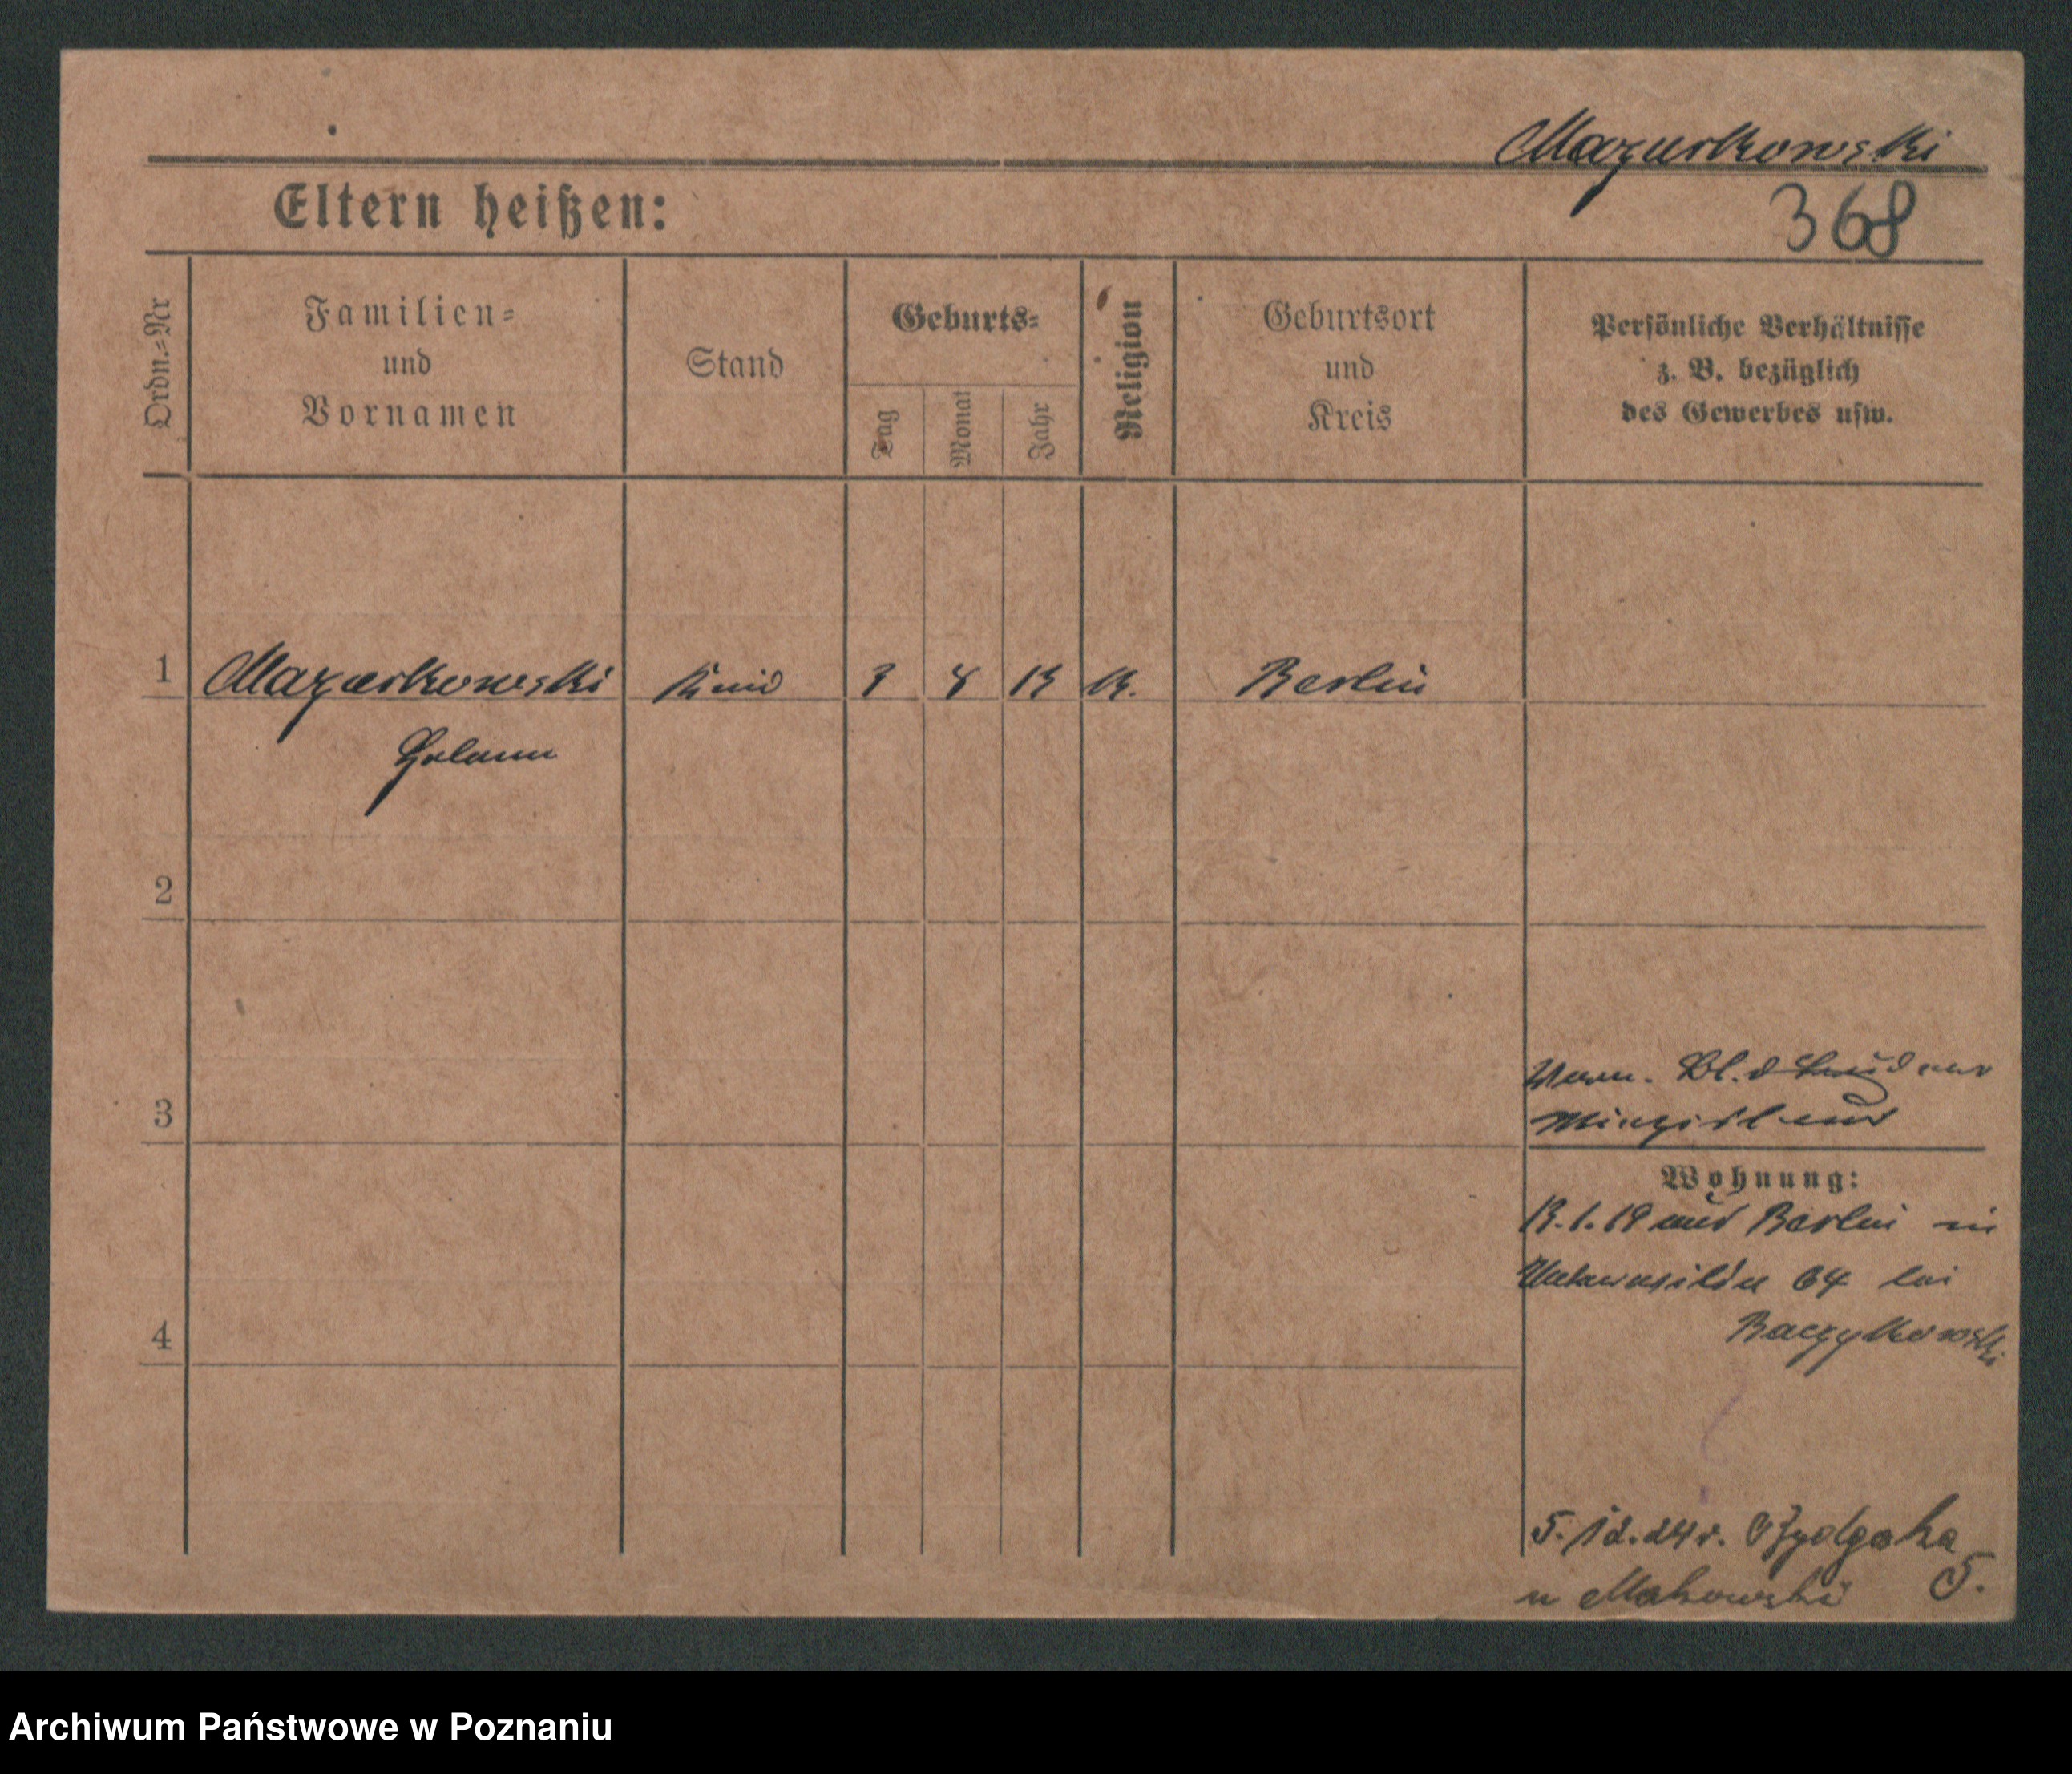 Mazurkowski
368
Eltern heißen:
Ordn.-Nr
Familien-
und
Vornamen
Stand
Geburts-
Tag
Monat
Jahr
Religion
Geburtsort
und
Kreis
Persönliche Verhältnisse
z. B. bezüglich
des Gewerbes usw.
1 Mazurkowski Kind 3 8 13 K. Berlin
2
3
4
Wohnung:
13.1.19 aus Berlin in
64 bei
Baczykowski
5.12.24 r.
u Makowski 5.